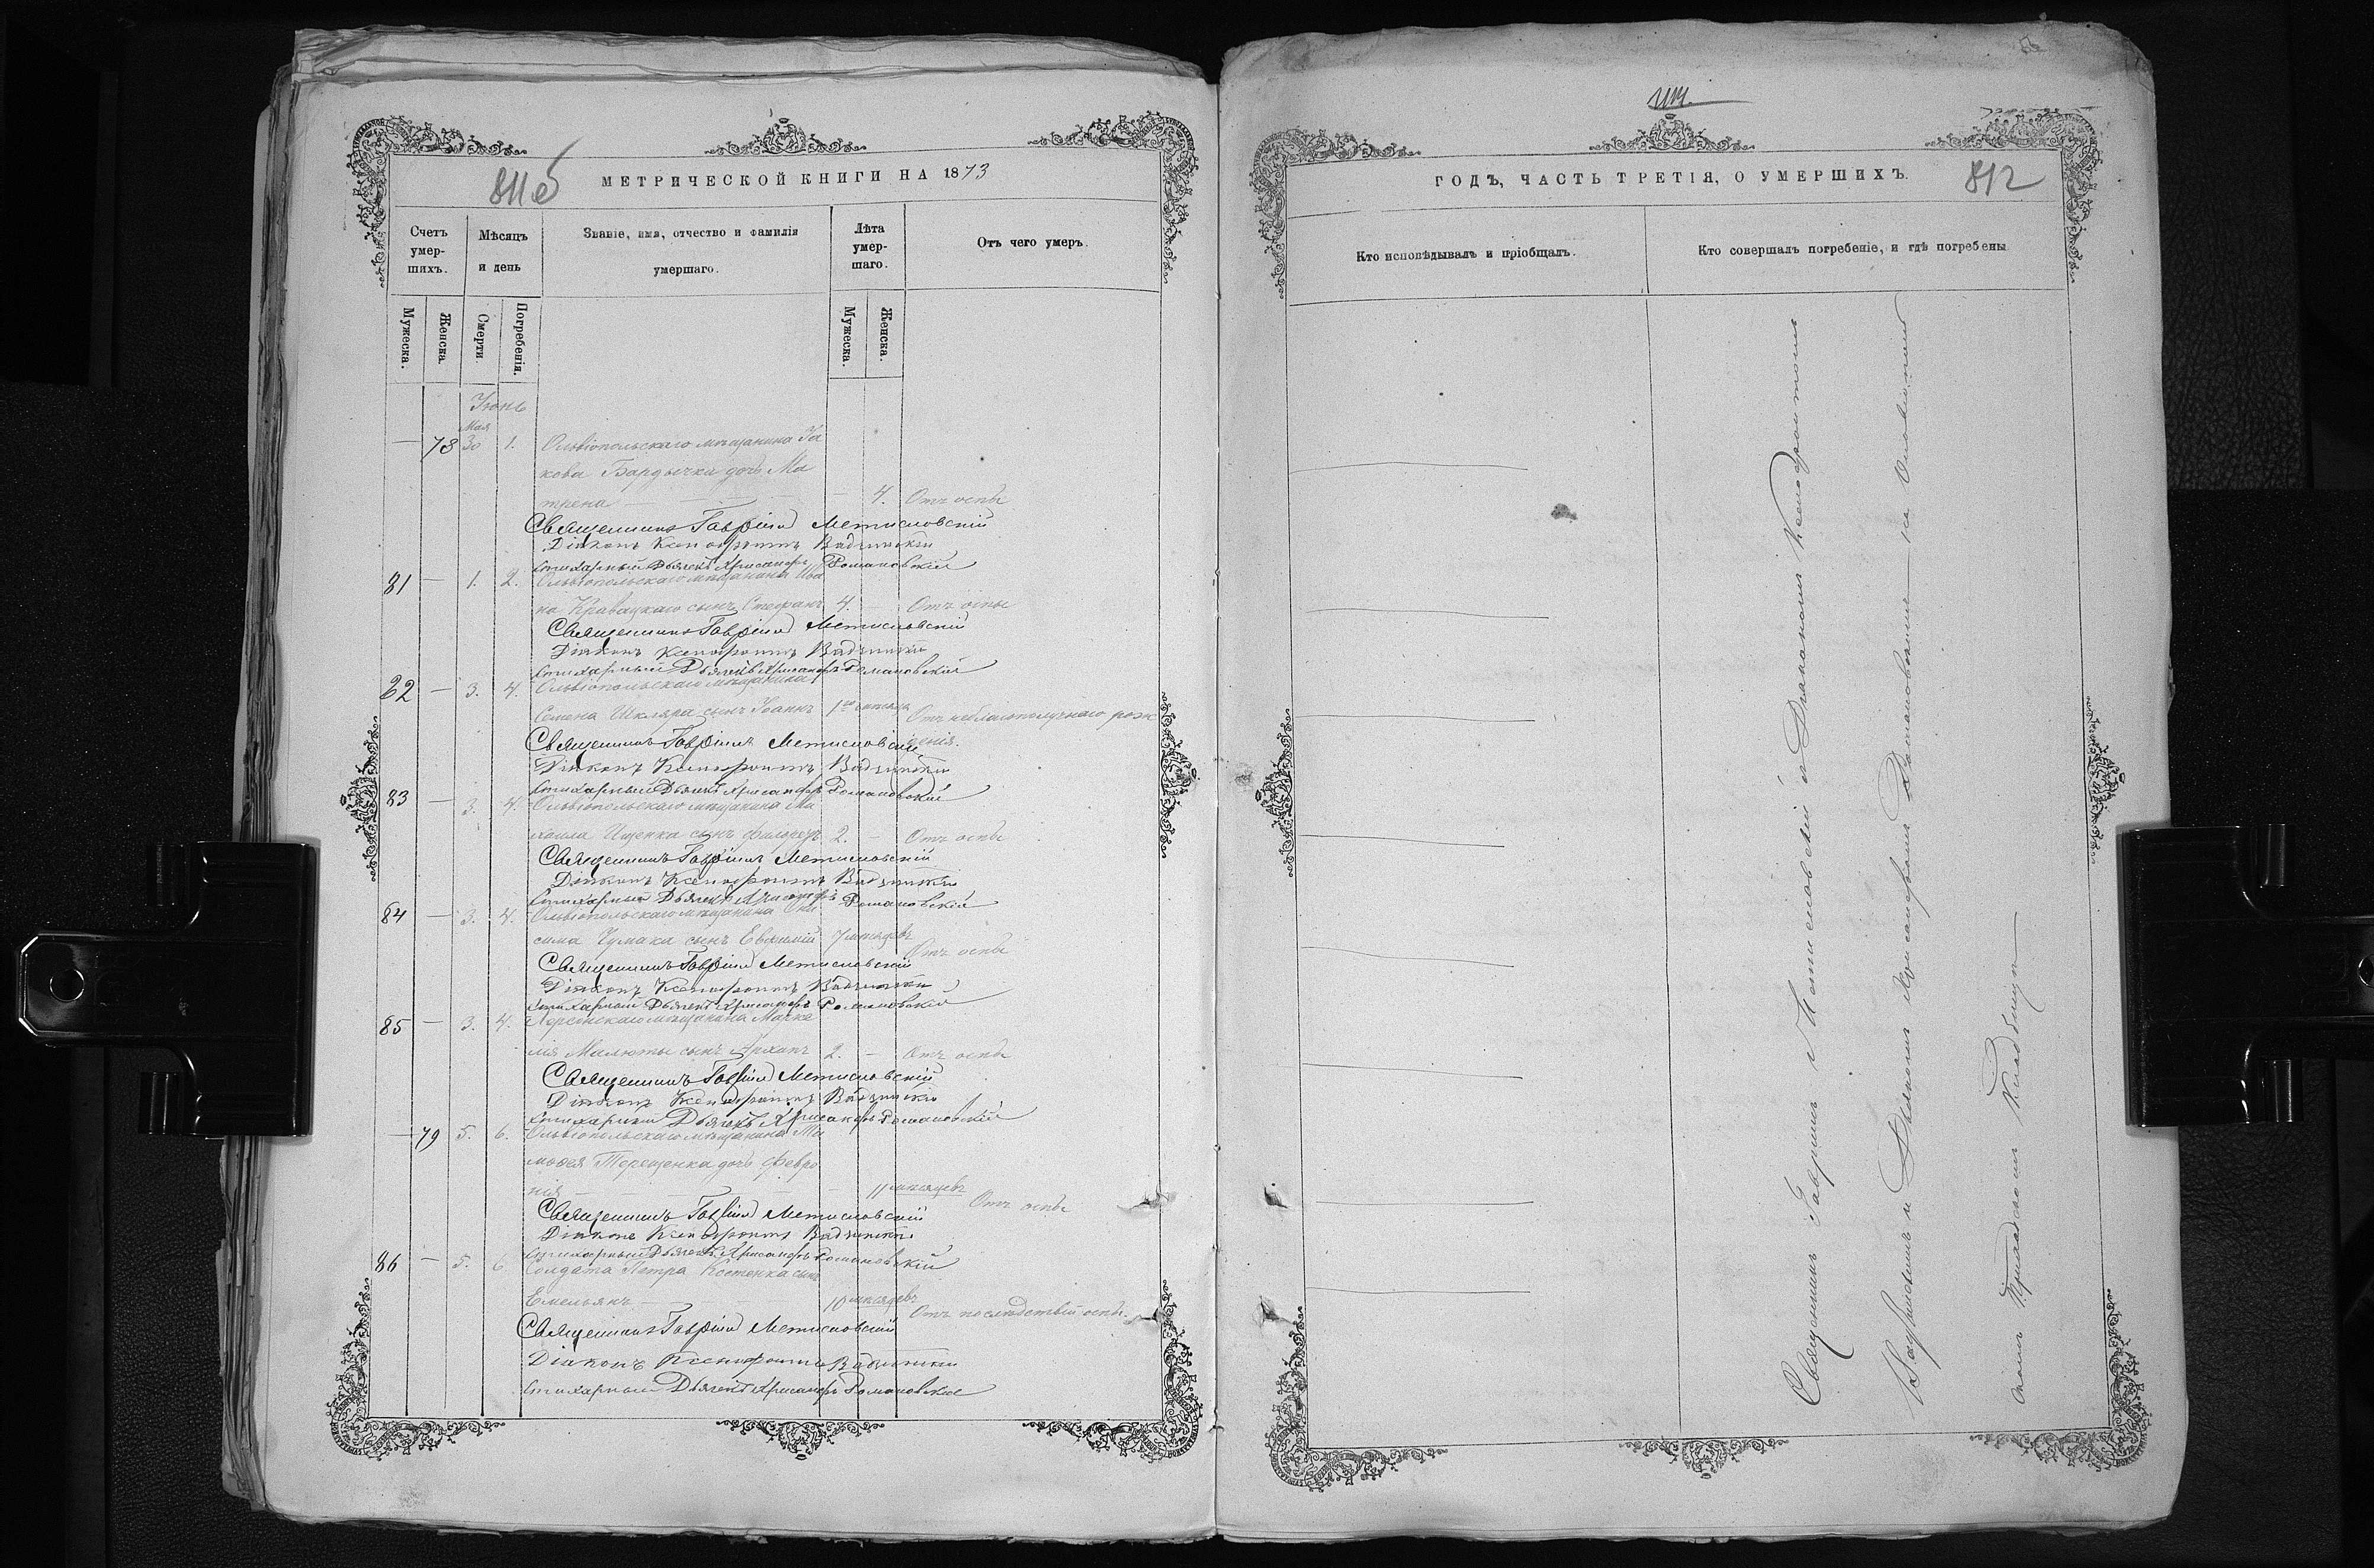 811об
МЕТРИЧЕСКОЙ КНИГИ НА 1873
Счетъ умершихъ.
Мѣсяцъ и день
Званіе, имя, отчество и фамилія умершаго.
Лѣта умершаго.
Отъ чего умеръ.
Мужеска.
Женска.
Смерти.
Погребенія.
Мужеска.
Женска.
Іюнь
Мая
— 78 30 1. Ольвіопольскаго мѣщанина Іа
кова Бардычка дочь Ма
трена — — — — — 4. Отъ оспы
Священникъ Гавріилъ Мстиславскій
Діаконъ Ксенофонтъ
Стихарный Дьячекъ Хрисанфъ Романовскій
81 — 1. 2. Ольвіопольскаго мѣщанина Ива
на Кравацкаго сынъ Стефанъ 4. — Отъ оспы
Священникъ Гавріилъ Мстиславскій
Діаконъ Ксенофонтъ
Стихарный Дьячекъ Хрисанфъ Романовскій
82 — 3. 4. Ольвіопольскаго мѣщанина
Семена Шкляра сынъ Іоаннъ 1го мѣсяца Отъ неблагополучнаго рож
денія.
Священникъ Гавріилъ Мстиславскій
Діаконъ Ксенофонтъ
Стихарный Дьячекъ Хрисанфъ Романовскій
83 — 3. 4. Ольвіопольскаго мѣщанина Ми
хаила Ищенка сынъ 2. — Отъ оспы
Священникъ Гавріилъ Мстиславскій
Діаконъ Ксенофонтъ
Стихарный Дьячекъ Хрисанфъ Романовскій
84 — 3. 4. Ольвіопольскаго мѣщанина Они
сима Чумака сынъ Евфимій 7 мѣсяцевъ Отъ оспы
Священникъ Гавріилъ Мстиславскій
Діаконъ Ксенофонтъ
Стихарный Дьячекъ Хрисанфъ Романовскій
85 — 3. 4. Херсонскаго мѣщанина Марке
лія Малюты сынъ Архипъ 2. — Отъ оспы
Священникъ Гавріилъ Мстиславскій
Діаконъ Ксенофонтъ
Стихарный Дьячекъ Хрисанфъ Романовскій
— 79 5. 6. Ольвіопольскаго мѣщанина Ти
мофея Терещенка дочь Февро
нія — — — — 11 мѣсяцевъ Отъ оспы
Священникъ Гавріилъ Мстиславскій
Діаконъ Ксенофонтъ
Стихарный Дьячекъ Хрисанфъ Романовскій
86 — 5. 6 Солдата Петра Костенка сынъ
Емельянъ — 10 мѣсяцевъ Отъ послѣдствій оспы.
Священникъ Гавріилъ Мстиславскій
Діаконъ Ксенофонтъ
Стихарный Дьячекъ Хрисанфъ Романовскій
812
ГОДЪ, ЧАСТЬ ТРЕТІЯ, О УМЕРШИХЪ.
Кто исповѣдывалъ и пріобщалъ.
Кто совершалъ погребеніе, и гдѣ погребены.
Священникъ Гавріилъ Мстиславскій съ Діакономъ Ксенофонтомъ
и Дьячкомъ Хрисанфомъ Романовскимъ на
Приходскомъ Кладбищѣ